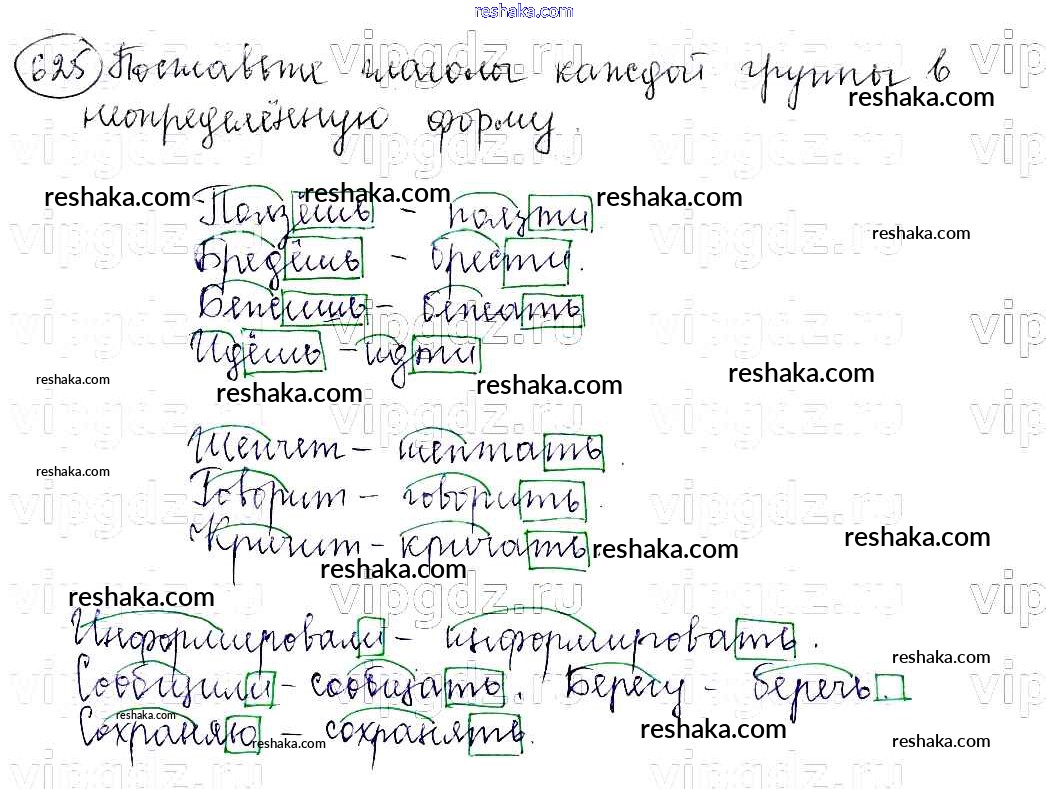 reshaka.com
625 Поставьте глаголы каждой группы в
reshaka.com
неопределённую форму.
reshaka.com reshaka.com reshaka.com
Ползёшь - ползти.
reshaka.com
Бредёшь - брести.
Бежишь - бежать
Идёшь - идти
reshaka.com reshaka.com reshaka.com reshaka.com
Шепчет - шептать.
reshaka.com
Говорит - говорить.
Кричит - кричать
reshaka.com reshaka.com
reshaka.com
reshaka.com
Информировали - информировать.
reshaka.com
Сообщили - сообщать. Берегу - беречь.
reshaka.com
Сохраняю - сохранять.
reshaka.com reshaka.com reshaka.com
vipgdz.ru